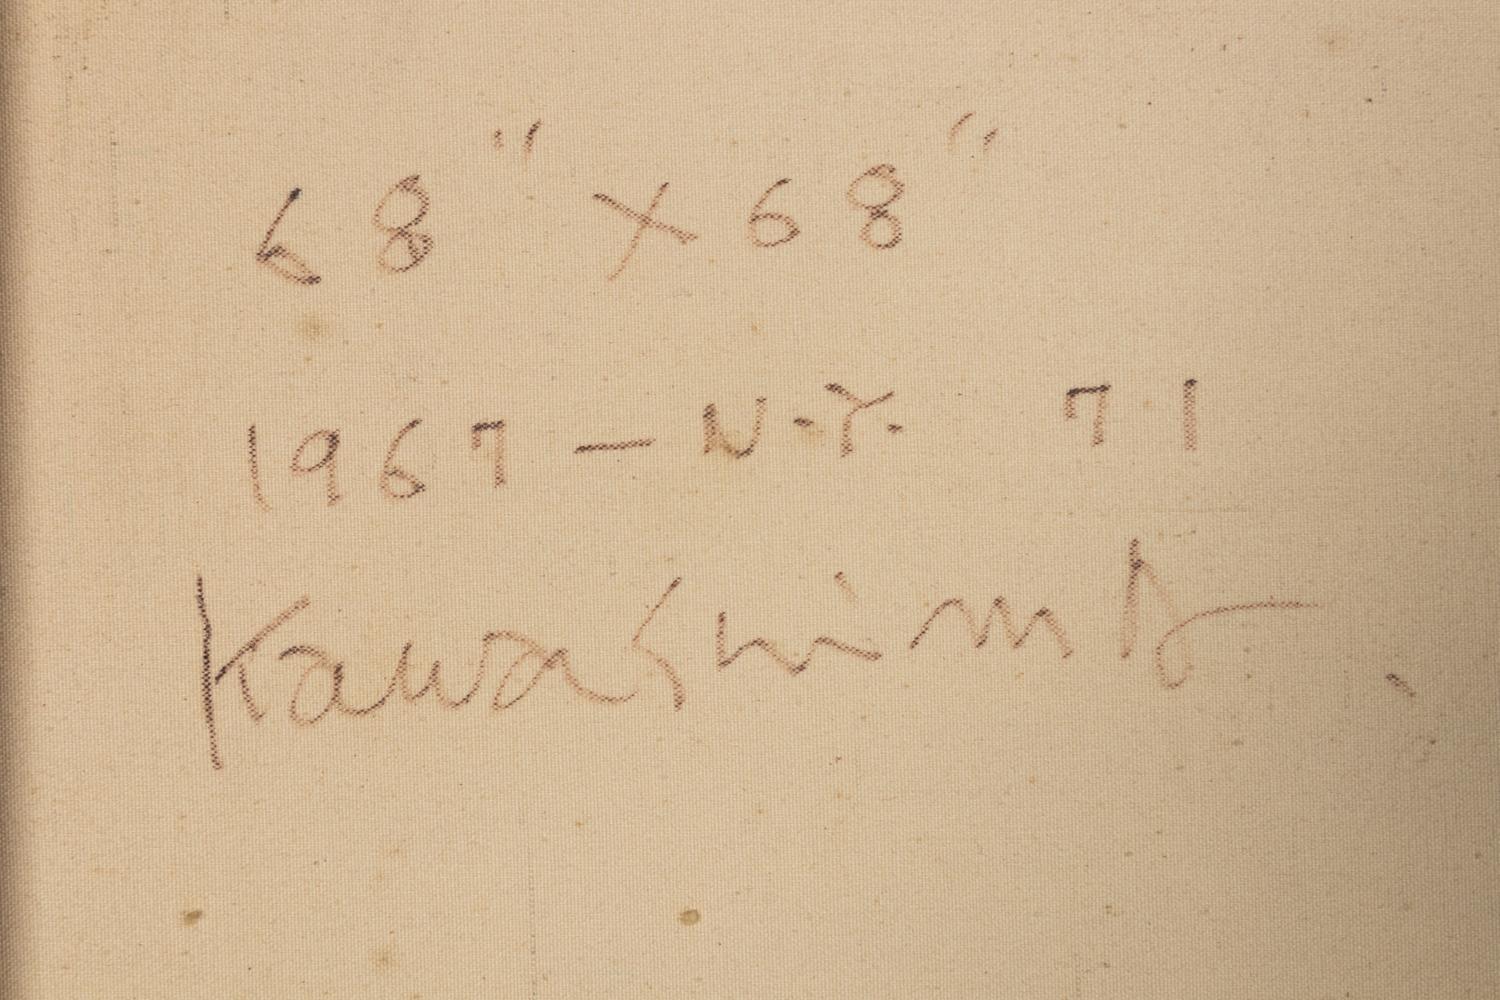 68" x 68"
1967 - N.Y. 71
Kawashima